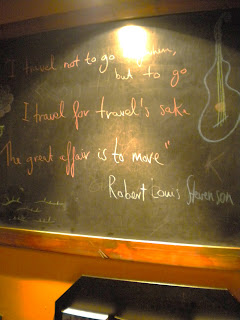 "I travel not to go
but to go
I travel for travel's sake
The great affair is to move"
Robert Louis Stevenson